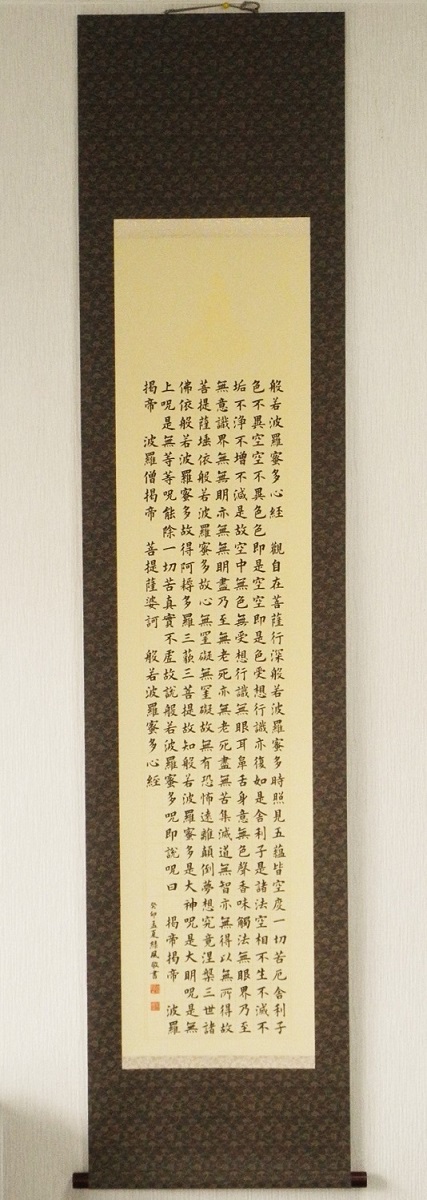 般若波羅蜜多心経　觀自在菩薩行深般若波羅蜜多時照見五蘊皆空度一切苦厄舎利子
色不異空空不異色色即是空空即是色受想行識亦復如是舎利子是諸法空相不生不滅不
垢不浄不増不減是故空中無色無受想行識無眼耳鼻舌身意無色聲香味觸法無眼界乃至
無意識界無無明亦無無明盡乃至無老死亦無老死盡無苦集滅道無智亦無得以無所得故
菩提薩埵依般若波羅蜜多故心無罣礙無罣礙故無有恐怖遠離顛倒夢想究竟涅槃三世諸
佛依般若波羅蜜多故得阿耨多羅三藐三菩提故知般若波羅蜜多是大神呪是大明呪是無
上呪是無等等呪能除一切苦真實不虚故説般若波羅蜜多呪即説呪曰　揭帝揭帝　波羅
揭帝　波羅僧揭帝　菩提薩婆訶　般若波羅蜜多心経
癸卯孟夏